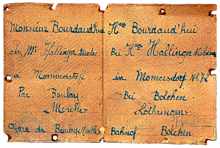 Monsieur Bourdaud'hui
chez Mr Hallinger Nicolas
à Momerstroff
Par Boulay
Moselle
Gare de Boulay (Moselle)
Herr Bourdaud'hui
Bei Herr Hallinger Nikolaus
in Momersdorf N° 72
Bei Bolchen
Lothringen
Bahnhof Bolchen